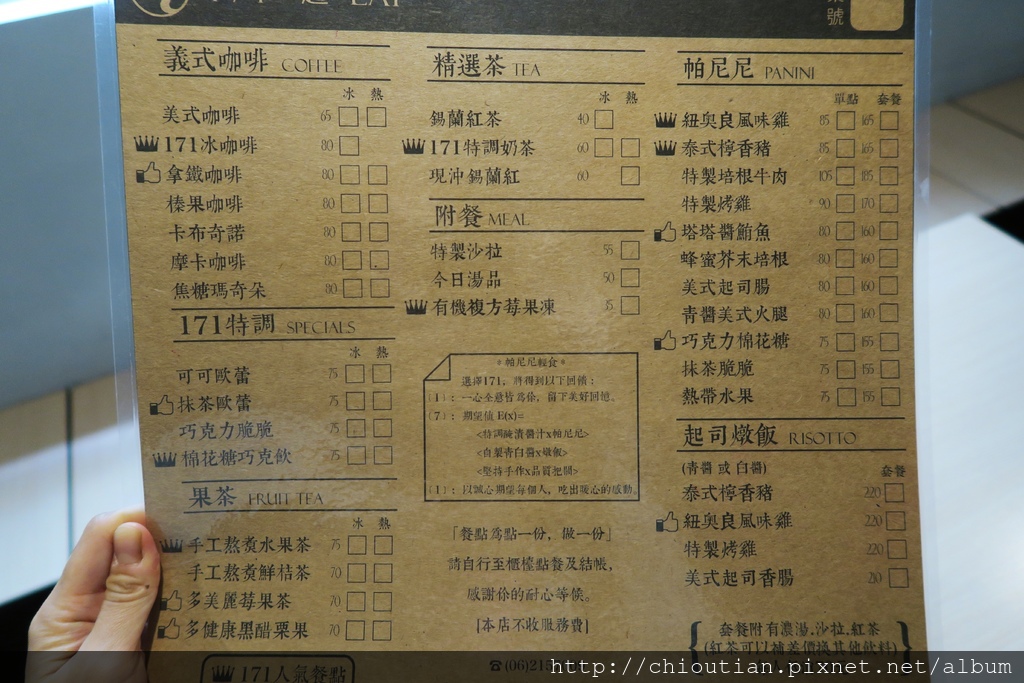 義式咖啡 COFFEE
冰 熱
美式咖啡 65
171冰咖啡 80
拿鐵咖啡 80
榛果咖啡 80
卡布奇諾 80
摩卡咖啡 80
焦糖瑪奇朵 80
171特調 SPECIALS
冰 熱
可可歐蕾 75
抹茶歐蕾 75
巧克力脆脆 75
棉花糖巧克飲 75
果茶 FRUIT TEA
冰 熱
手工熬煮水果茶 75
手工熬煮鮮桔茶 70
多美麗莓果茶 70
多健康黑醋栗果 70
171人氣餐點
精選茶 TEA
冰 熱
錫蘭紅茶 40
171特調奶茶 60
現沖錫蘭紅 60
附餐 MEAL
特製沙拉 55
今日湯品 50
有機複方莓果凍 35
*帕尼尼輕食*
選擇171, 將得到以下回饋:
(1): 一心全意皆為你, 留下美好回憶。
(7): 期望值 E(x)=
<特調醃漬醬汁x帕尼尼>
<自製青白醬x燉飯>
<堅持手作x品質把關>
(1): 以誠心期望每個人, 吃出暖心的感動。
「餐點為點一份, 做一份」
請自行至櫃檯點餐及結帳,
感謝你的耐心等候。
[本店不收服務費]
☎(06)215
帕尼尼 PANINI
單點 套餐
紐奧良風味雞 85 165
泰式檸香豬 85 165
特製培根牛肉 105 185
特製烤雞 90 170
塔塔醬鮪魚 80 160
蜂蜜芥末培根 80 160
美式起司腸 80 160
青醬美式火腿 80 160
巧克力棉花糖 75 155
抹茶脆脆 75 155
熱帶水果 75 155
起司燉飯 RISOTTO
(青醬 或 白醬) 套餐
泰式檸香豬 220
紐奧良風味雞 220
特製烤雞 220
美式起司香腸 210
套餐附有濃湯.沙拉.紅茶
(紅茶可以補差價換其他飲料)
http://chioutian.pixnet.net/album